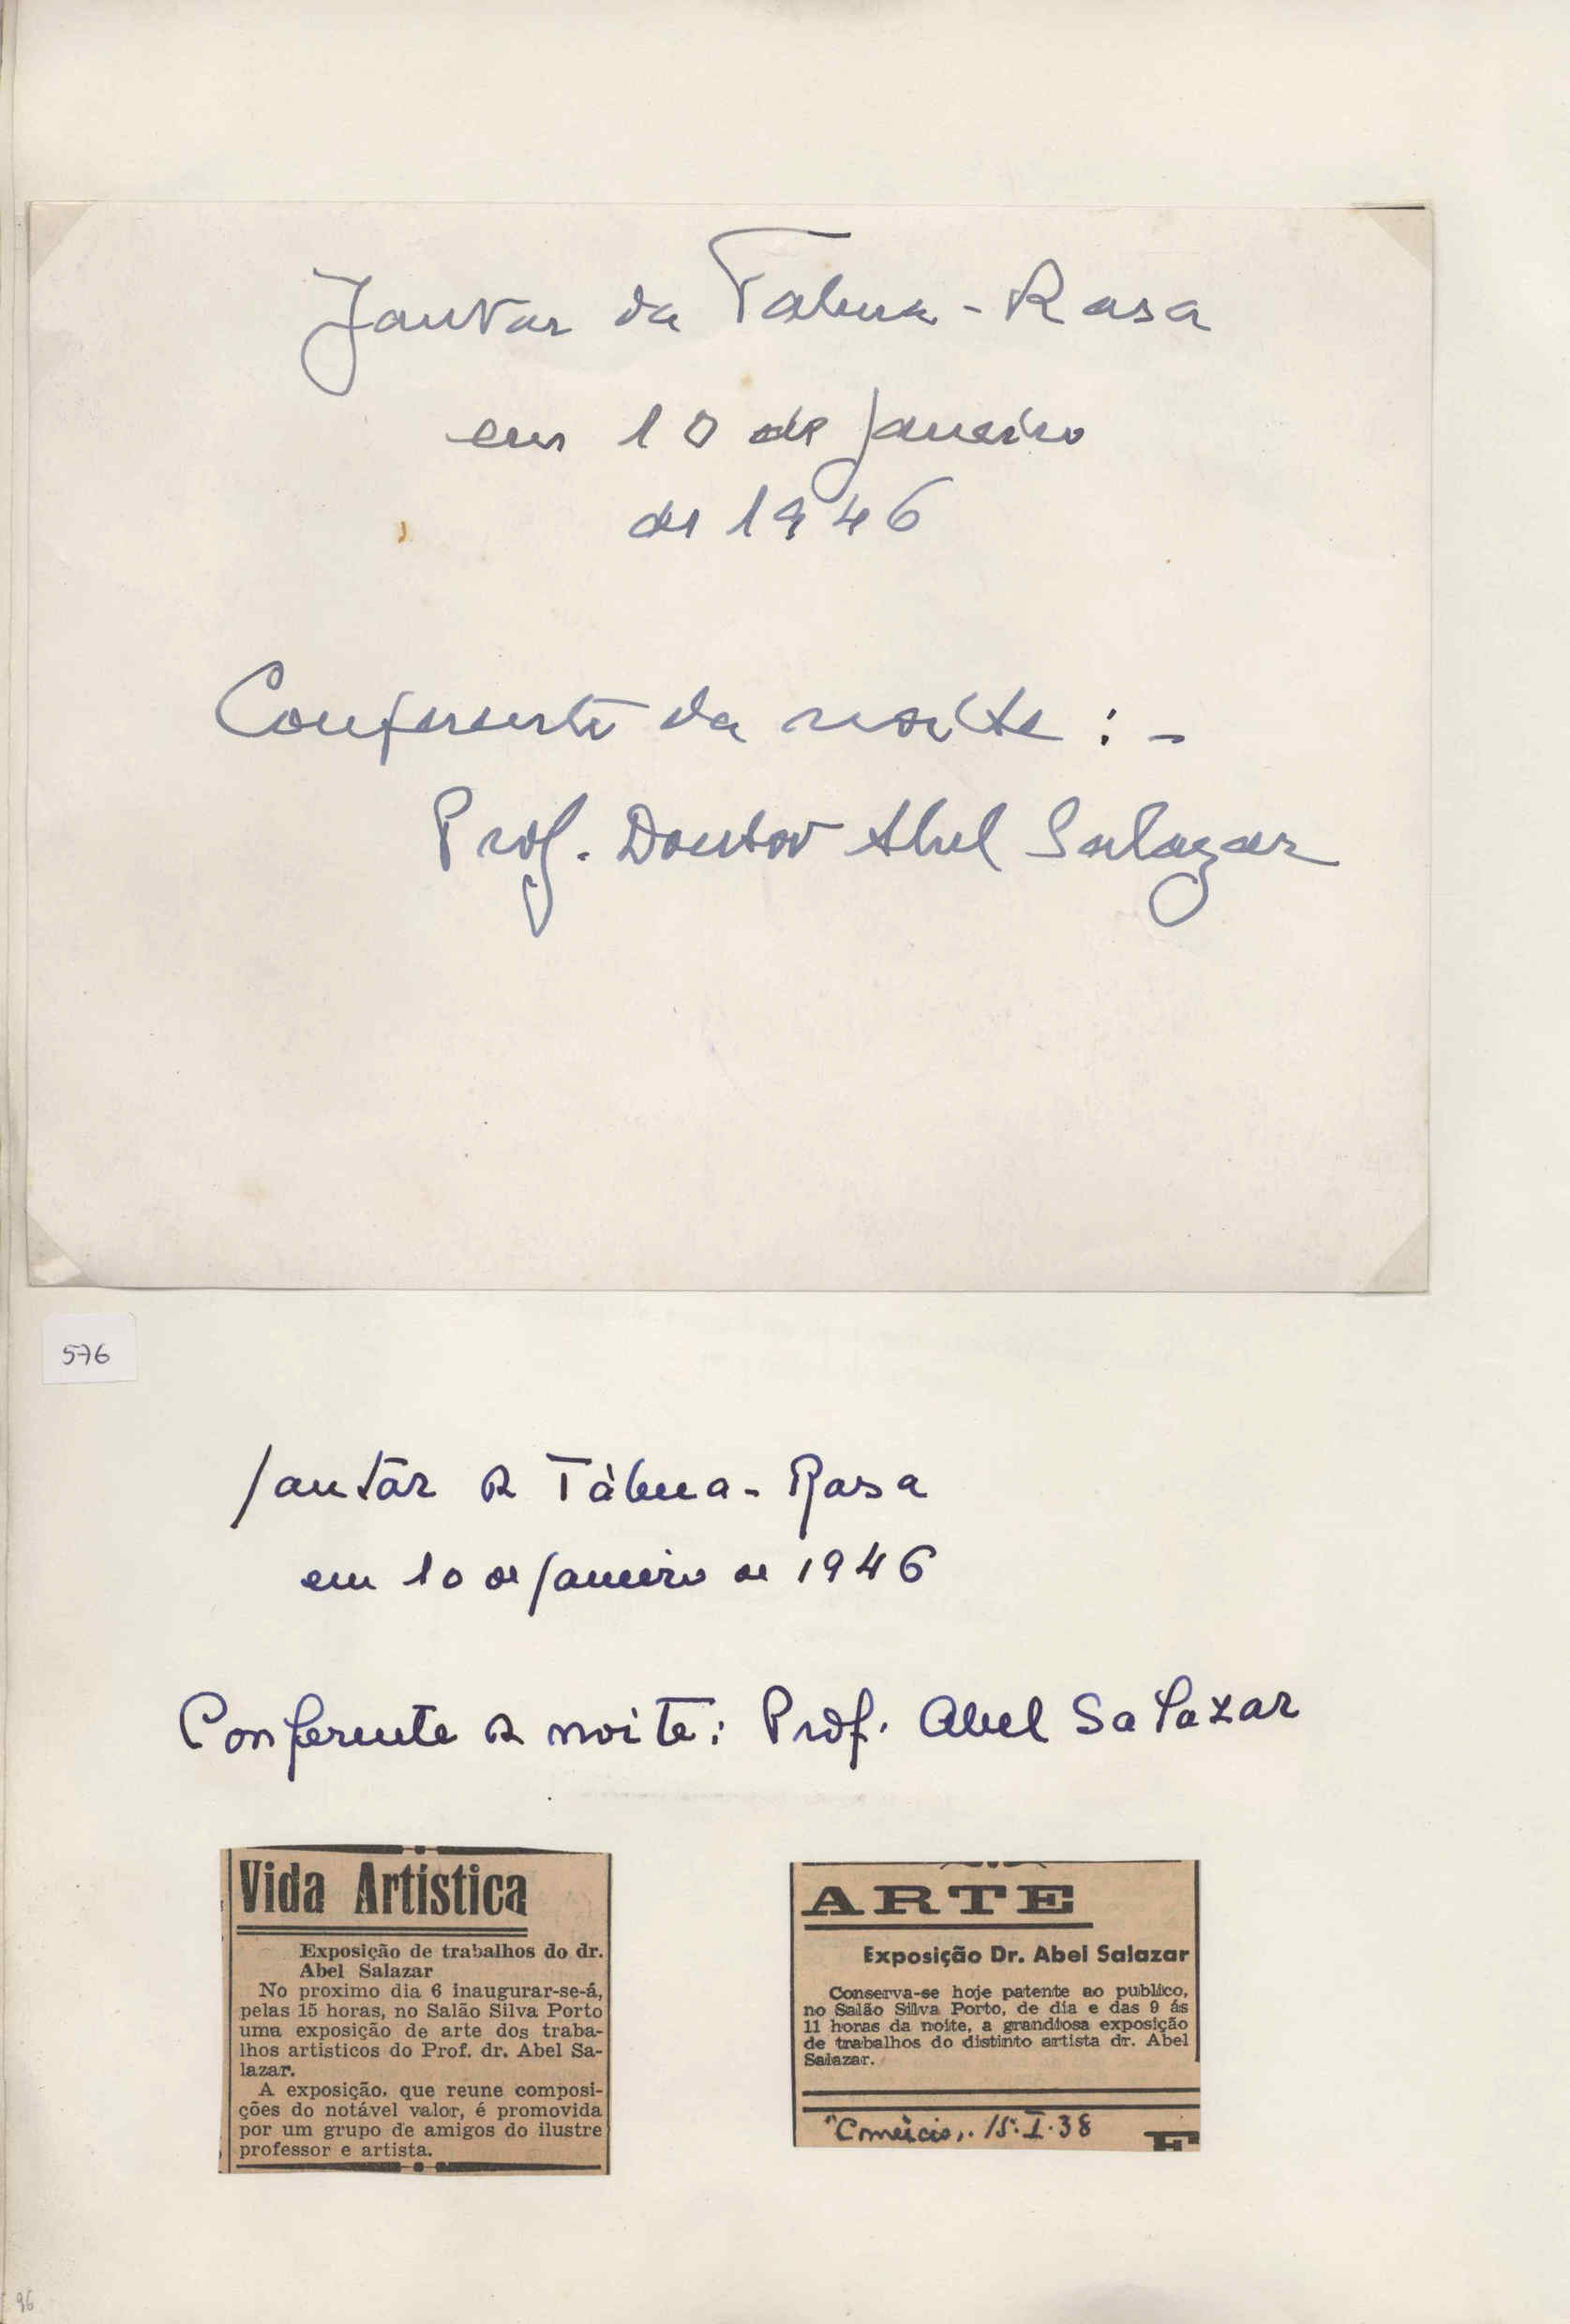 Jantar da Tabua-Rasa
em 10 de Janeiro
de 1946
Conferente da noite :-
Prof. Doutor Abel Salazar
576
Jantar da Tàbua-Rasa
em 10 de Janeiro de 1946
Conferente da noite: Prof. Abel Salazar
Vida Artística
Exposição de trabalhos do dr.
Abel Salazar
No proximo dia 6 inaugurar-se-á,
pelas 15 horas, no Salão Silva Porto
uma exposição de arte dos traba-
lhos artisticos do Prof. dr. Abel Sa-
lazar.
A exposição, que reune composi-
ções do notável valor, é promovida
por um grupo de amigos do ilustre
professor e artista.
ARTE
Exposição Dr. Abel Salazar
Conserva-se hoje patente ao publico,
no Salão Silva Porto, de dia e das 9 ás
11 horas da noite, a grandiosa exposição
de trabalhos do distinto artista dr. Abel
Salazar.
"Comércio". 15.I.38
96